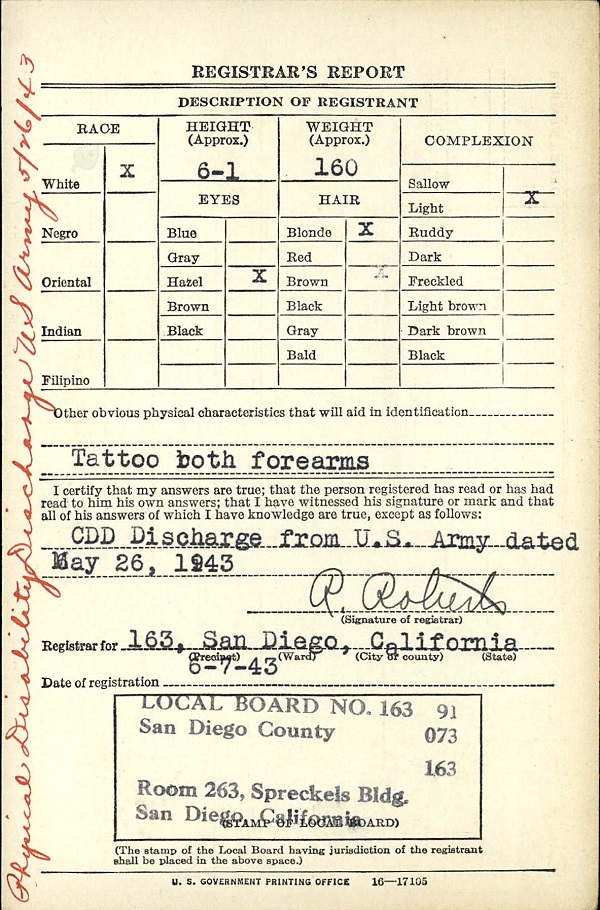 REGISTRAR'S REPORT
DESCRIPTION OF REGISTRANT
RACE
HEIGHT
(Approx.)
WEIGHT
(Approx.)
COMPLEXION
6-1
160
White X
Sallow
Light X
EYES
HAIR
Negro
Blue
Blonde X
Ruddy
Gray
Red
Dark
Oriental
Hazel X
Brown X
Freckled
Brown
Black
Light brown
Indian
Black
Gray
Dark brown
Bald
Black
Filipino
Other obvious physical characteristics that will aid in identification
Tattoo both forearms
I certify that my answers are true; that the person registered has read or has had
read to him his own answers; that I have witnessed his signature or mark and that
all of his answers of which I have knowledge are true, except as follows:
CDD Discharge from U.S. Army dated
May 26, 1943
R. Roberts
(Signature of registrar)
Registrar for 163, San Diego, California
(Precinct) (Ward) (City or county) (State)
6-7-43
Date of registration
LOCAL BOARD NO. 163 91
San Diego County 073
163
Room 263, Spreckels Bldg.
San Diego, California
(STAMP OF LOCAL BOARD)
(The stamp of the Local Board having jurisdiction of the registrant
shall be placed in the above space.)
U. S. GOVERNMENT PRINTING OFFICE 16—17105
Physical Disability Discharge US Army 5/26/43